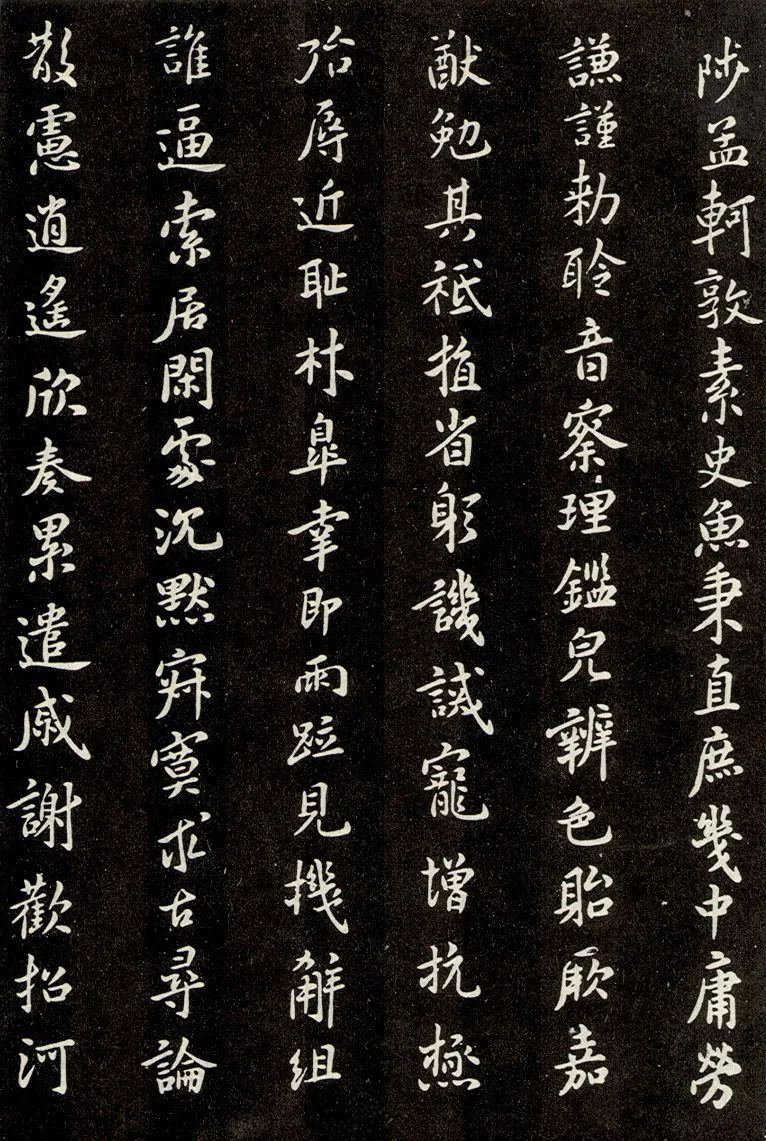 陟孟軻敦素史魚秉直庶幾中庸勞
謙謹勅聆音察理鑑皃辨色貽厥嘉
猷勉其祗植省躬譏誡寵增抗極
殆辱近恥林皐幸即兩疏見機解組
誰逼索居閑處沉默寂寞求古尋論
散慮逍遙欣奏累遣慼謝歡招河